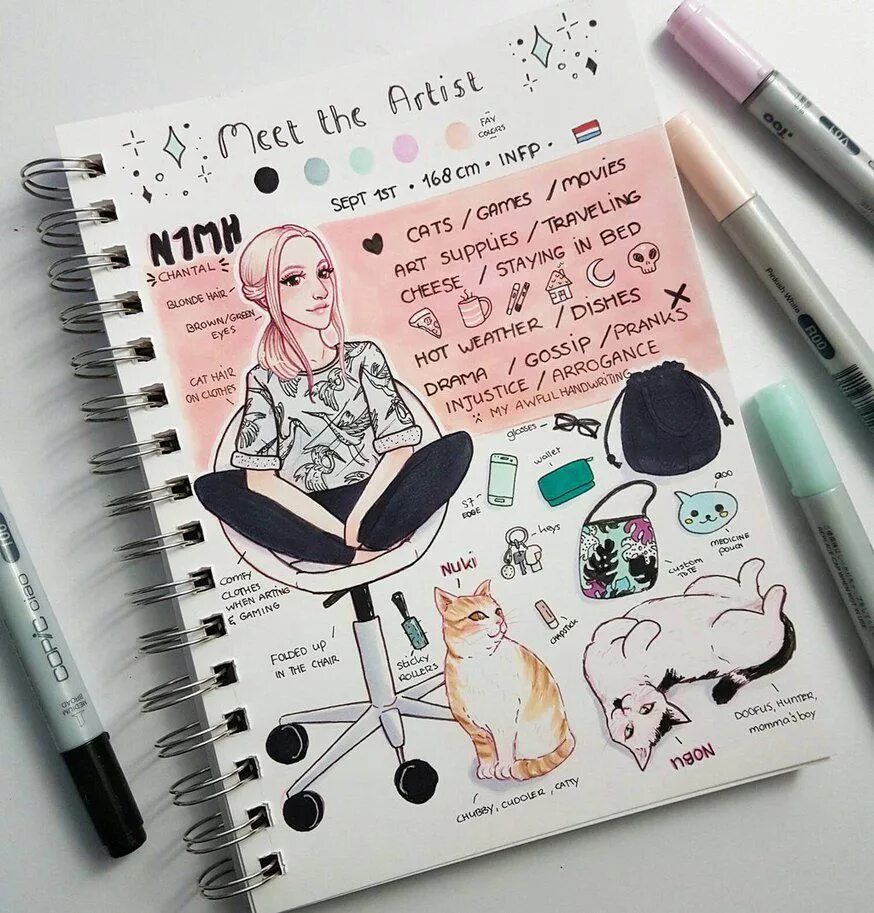 Meet the Artist
FAV
COLORS
SEPT 1ST • 168 cm • INFP •
N1MH
CHANTAL
BLONDE HAIR
BROWN/GREEN
EYES
CAT HAIR
ON CLOTHES
CATS / GAMES / MOVIES
ART SUPPLIES / TRAVELING
CHEESE / STAYING IN BED
HOT WEATHER / DISHES
DRAMA / GOSSIP / PRANKS
INJUSTICE / ARROGANCE
MY AWFUL HANDWRITING
glasses
wallet
S7
EDGE
keys
QOO
MEDICINE
POUCH
CUSTOM
TOTE
chapstick
COMFY
CLOTHES
WHEN ARTING
& GAMING
FOLDED UP
IN THE CHAIR
sticky
ROLLERS
NUKi
CHUBBY, CUDDLER, CATTY
NOBU
DOOFUS, HUNTER,
momma's boy
Too
Pinkish White
R00
COPIC ciao
MEDIUM
BROAD
100